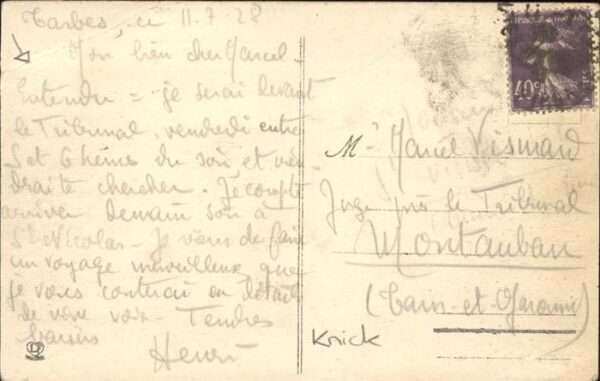 Tarbes, ce 11-7-28
Mon bien cher Marcel -
Entendu = je serai devant
le Tribunal, vendredi entre
5 et 6 heures du soir et
chercher. Je compte
arriver demain soir à
St Nicolas - Je viens de faire
un voyage merveilleux que
je vous conterai en détails
de vive voix - Tendres
baisers
Henri
40c
Mr Marcel Vismard
Juge près le Tribunal
Montauban
(Tarn-et-Garonne)
Knick